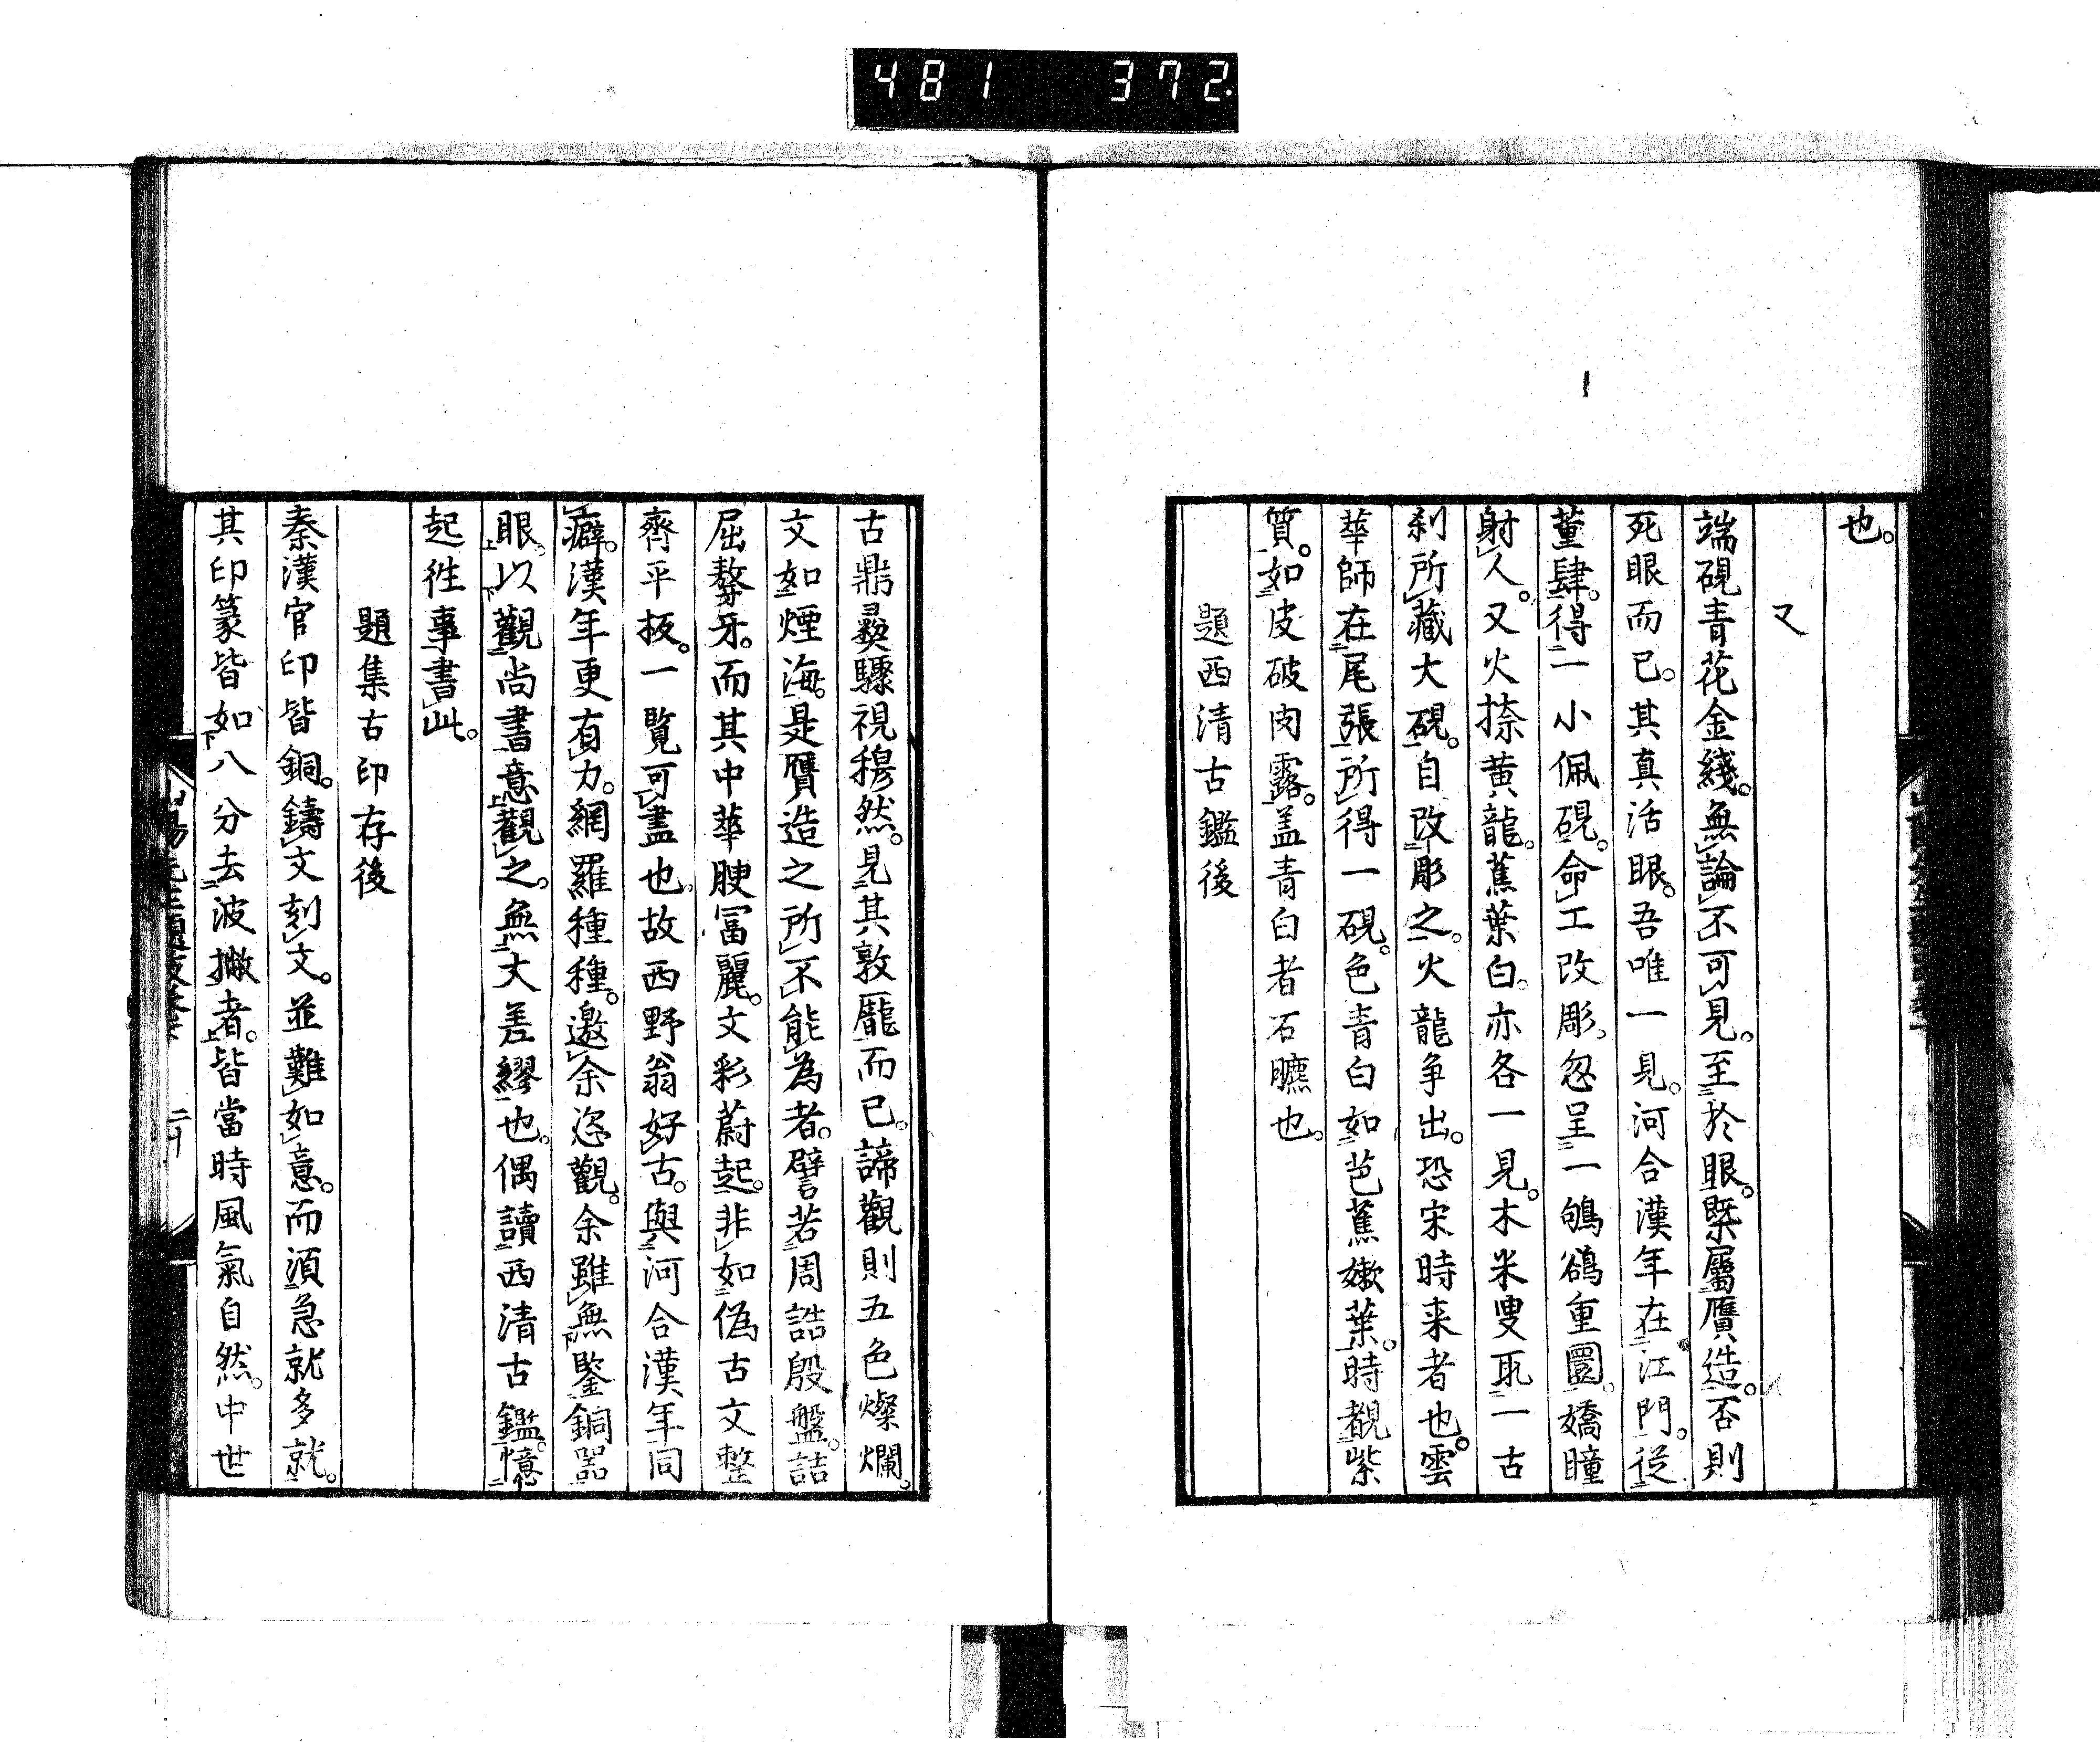 481 372
也。
又
端硯青花金綫。無論不可見。至於眼。既屬贋造。否則
死眼而已。其真活眼。吾唯一見。河合漢年在江門。從
董肆。得一小佩硯。命工改彫。忽呈一鴝鵒重圜。嬌瞳
射人。又火捺黄龍。蕉葉白。亦各一見。木米叟瓦一古
刹所藏大硯。自改彫之。火龍争出。恐宋時来者也。雲
華師在尾張。所得一硯。色青白如芭蕉嫩葉。時覩紫
質。如皮破肉露。盖青白者石臕也。
題西清古鑑後
古鼎彛驟視穆然。見其敦厖而已。諦觀則五色燦爛。
文如煙海。是贋造之所不能為者。譬若周誥殷盤。詰
屈聱牙。而其中華腴冨麗。文彩蔚起。非如偽古文整
齊平板。一覧可盡也。故西野翁好古。與河合漢年同
癖。漢年更有力。網羅種種。邀余恣觀。余雖無鑒銅器
眼。以觀尚書意觀之。無大差繆也。偶讀西清古鑑。憶
起徃事書此。
題集古印存後
秦漢官印皆銅。鑄文刻文。並難如意。而湏急就多就。
其印篆皆如八分去波撇者。皆當時風氣自然。中世